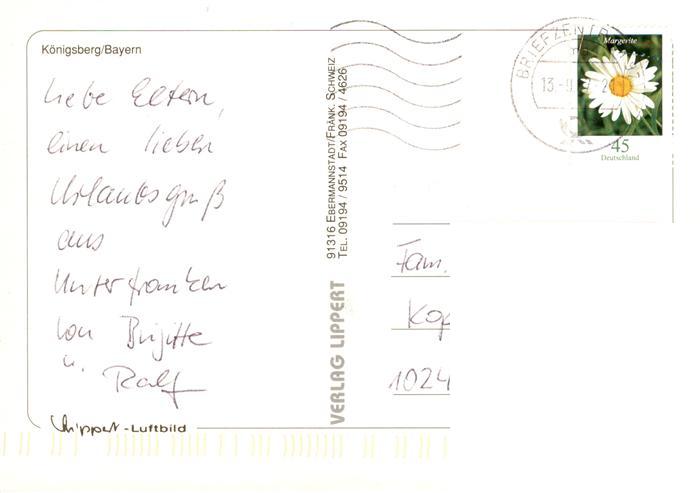 Königsberg/Bayern
Liebe Eltern,
einen lieben
Urlaubsgruß
aus
Unterfranken
von Brigitte
u. Ralf
Lippert-Luftbild
VERLAG LIPPERT
91316 EBERMANNSTADT/FRÄNK. SCHWEIZ
TEL. 09194 / 9514 FAX 09194 / 4626
BRIEFZENTR
13.-9.
Margerite
45
Deutschland
Fam.
Kop
1024